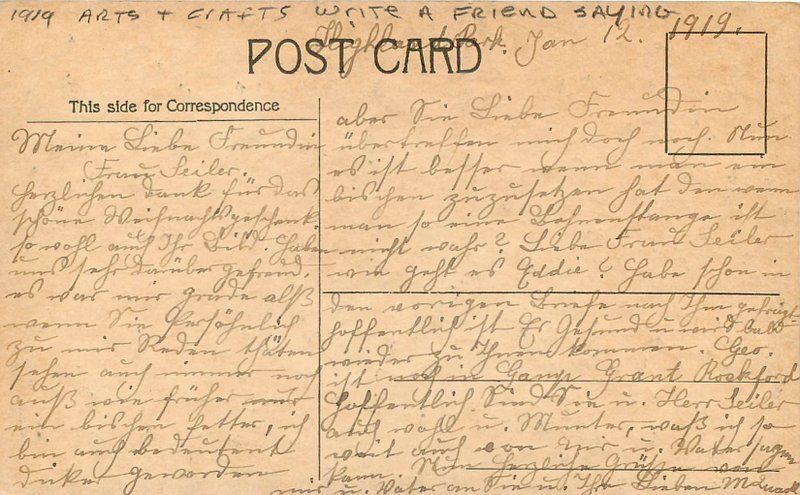 1919 ARTS + CRAFTS WRITE A FRIEND SAYING
Highland Park. Jan 12. 1919.
POST CARD
This side for Correspondence
Meine Liebe Freundin
Frau Seiler.
herzlichen Dank für das
schöne Weihnachtsgeschenk
so wohl auch Ihr Bild haben
uns sehr darüber gefreud.
es war mir grade alß
wenn Sie Persöhnlich
zu mir Reden thäten
sehen auch immer noch
auß wie früher nur
ein bischen fetter, ich
bin auch bedeutent
dicker geworden
aber Sie Liebe Freundin
übertreffen mich doch noch. Nun
es ist besser wenn man ein
bischen zuzusetzen hat den wenn
man so eine Bohnenstange ist
nicht wahr? Liebe Frau Seiler
wie geht es Eddie? habe schon in
den vorigen Briefe nach Ihm gefragt
hoffentlich ist Er Gesund u. wird bald
wieder zu Ihnen kommen. Geo.
ist noch in Camp Grant Rockford
hoffentlich Sind Sie u. Herr Seiler
auch wohl u. Munter, waß ich so
weit auch von mir u. Vater sagen
kann. Nun herzliche Grüße von
mir u. Vater an Sie u. Ihre Lieben